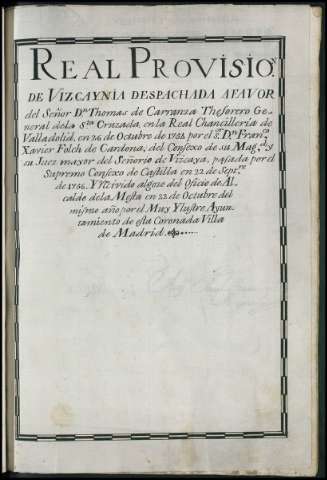 REAL PROVISIO.N
DE VIZCAYNIA DESPACHADA A FAVOR
del Señor D.n Thomas de Carranza Thesorero Ge-
neral dela S.ta Cruzada, en la Real Chancilleria de
Valladolid, en 16 de Octubre de 1751 por el S.r D.n Fran.co
Xavier Folch de Cardona, del Consexo de su Mag.d y
su Juez mayor del Señorio de Vizcaya, pasada por el
Supremo Consexo de Castilla en 22 de Sept.re
de 1756. Y Rĩvido al goze del Oficio de Al-
calde dela Mesta en 22 de Octubre del
mismo año por el Muy Ylustre Ayun-
tamiento de esta Coronada Villa
de Madrid.